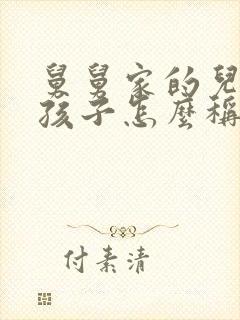 舅舅家的兒
孩子怎麼稱
付素清